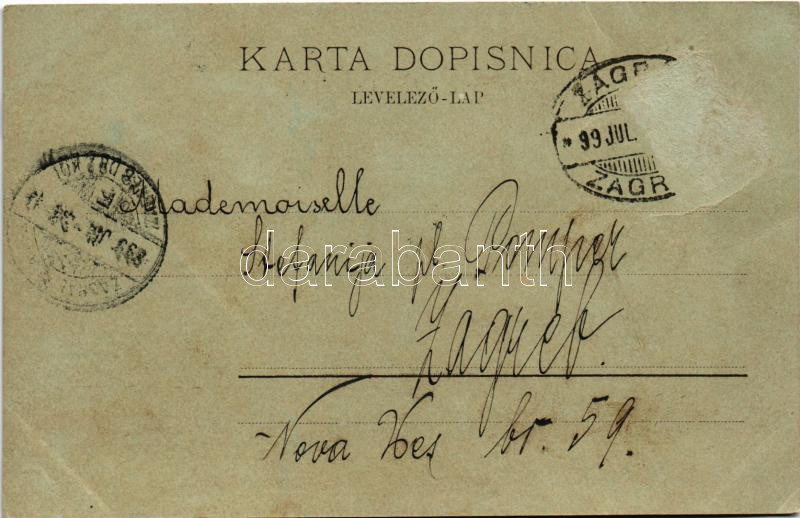 KARTA DOPISNICA
LEVELEZŐ-LAP
ZAGR
99 JUL.
ZAGR
Mademoiselle
Stefanija pl.
Zagreb.
Nova Ves br. 59.
darabanth